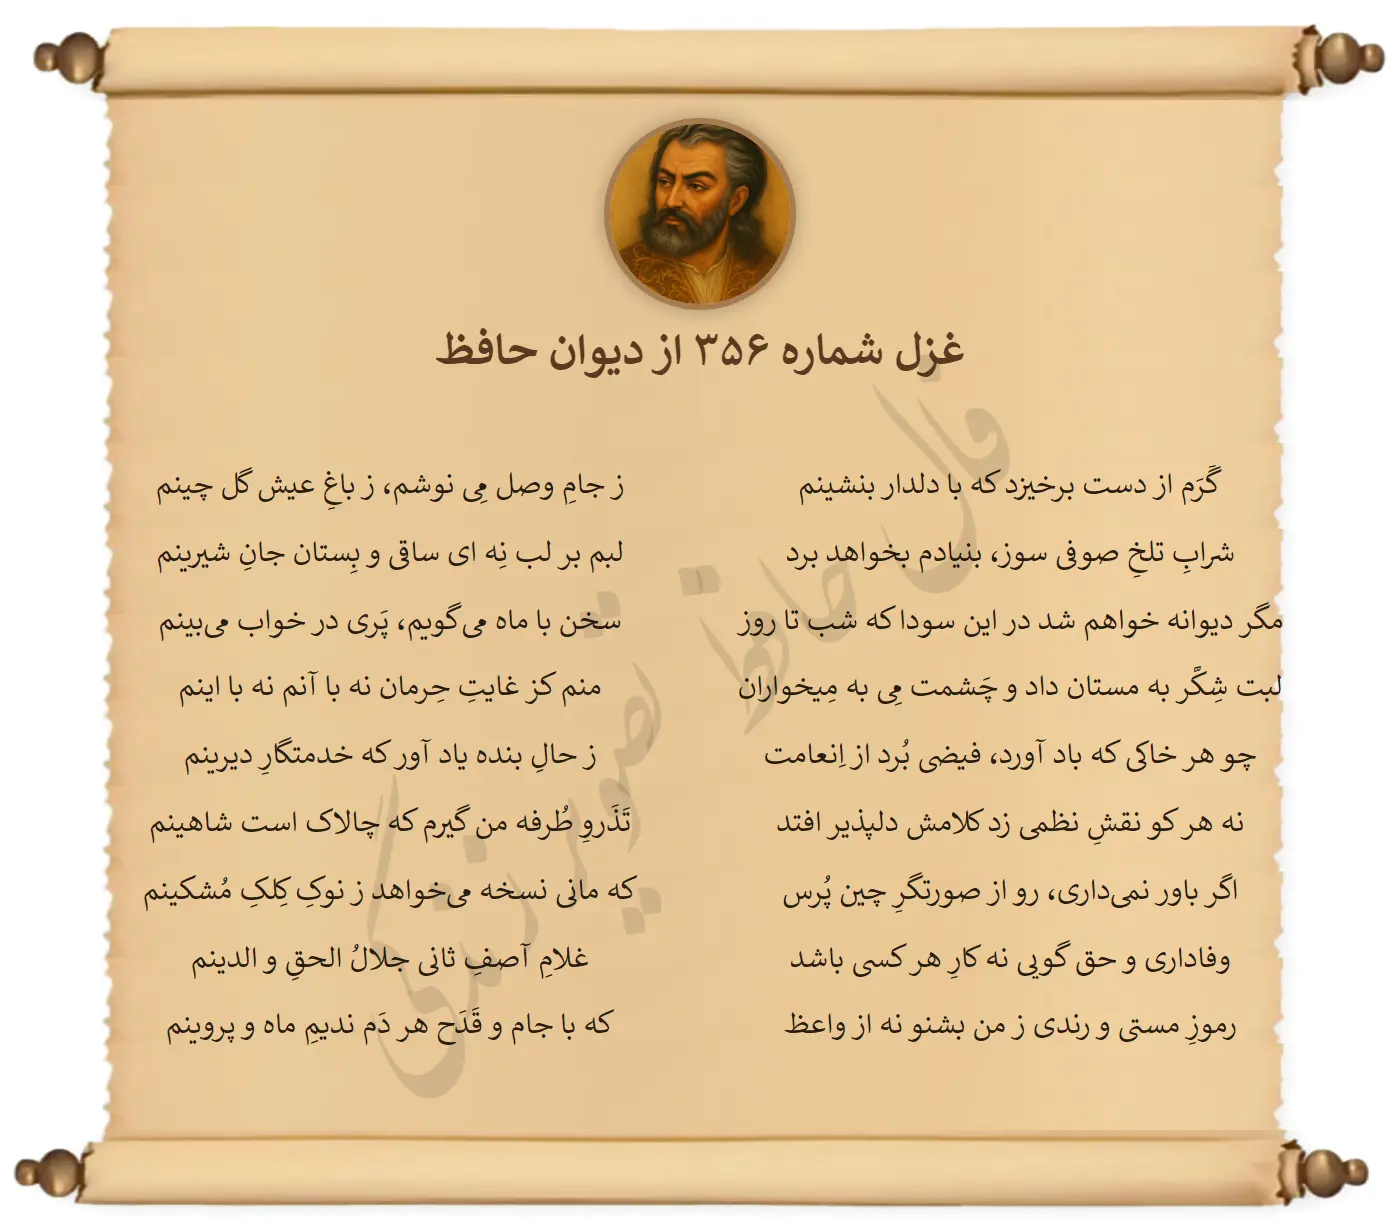 غزل شماره ۳۵۶ از دیوان حافظ
گَرَم از دست برخیزد که با دلدار بنشینم
ز جامِ وصل مِی نوشم، ز باغِ عیش گل چینم
شرابِ تلخِ صوفی سوز، بنیادم بخواهد برد
لبم بر لب نِه ای ساقی و بِستان جانِ شیرینم
مگر دیوانه خواهم شد در این سودا که شب تا روز
سخن با ماه می‌گویم، پَری در خواب می‌بینم
لبت شِکَّر به مستان داد و چَشمت مِی به مِیخواران
منم کز غایتِ حِرمان نه با آنم نه با اینم
چو هر خاکی که باد آورد، فیضی بُرد از اِنعامت
ز حالِ بنده یاد آور که خدمتگارِ دیرینم
نه هر کو نقشِ نظمی زد کلامش دلپذیر افتد
تَذَروِ طُرفه من گیرم که چالاک است شاهینم
اگر باور نمی‌داری، رو از صورتگرِ چین پُرس
که مانی نسخه می‌خواهد ز نوکِ کِلکِ مُشکینم
وفاداری و حق گویی نه کارِ هر کسی باشد
غلامِ آصفِ ثانی جلالُ الحقِ و الدینم
رموزِ مستی و رندی ز من بشنو نه از واعظ
که با جام و قَدَح هر دَم ندیمِ ماه و پروینم
فال حافظ تصویر زندگی